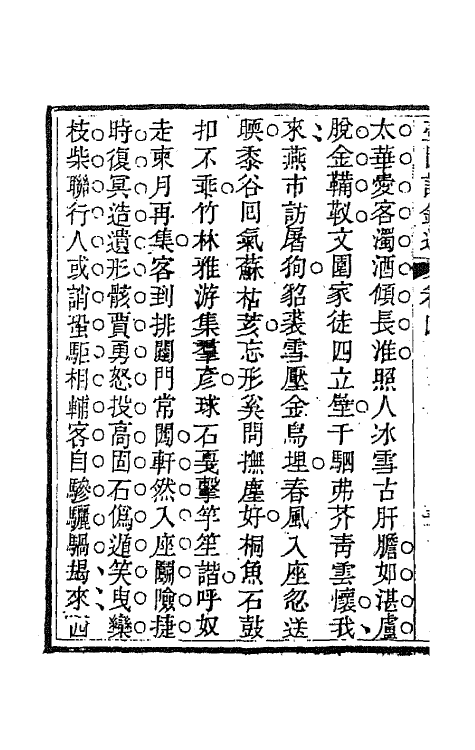 太華愛客濁酒傾長淮照人冰雪古肝膽如湛盧
脫金鞲敲文園家徒四立壁千駟弗芥靑雲懷我
來燕市訪屠狗貂裘雪壓金烏埋春風入座忽送
腰黍谷回氣蘇枯荄忘形奚問撫塵好桐魚石鼓
扣不乖竹林雅游集羣彥球石戞擊竽笙諧呼奴
走柬月再集客到排闥門常闓軒然入座鬭險捷
時復冥造遺形骸賈勇怒投高固石僞遁笑曳欒
枝柴聯行人或誚蛩駏相輔客自驂驪騧朅來西